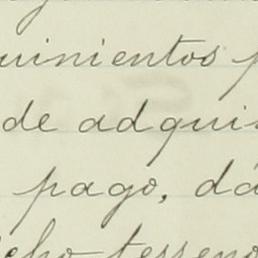 uinientos p
de adqui
pago, dá
cho terreno